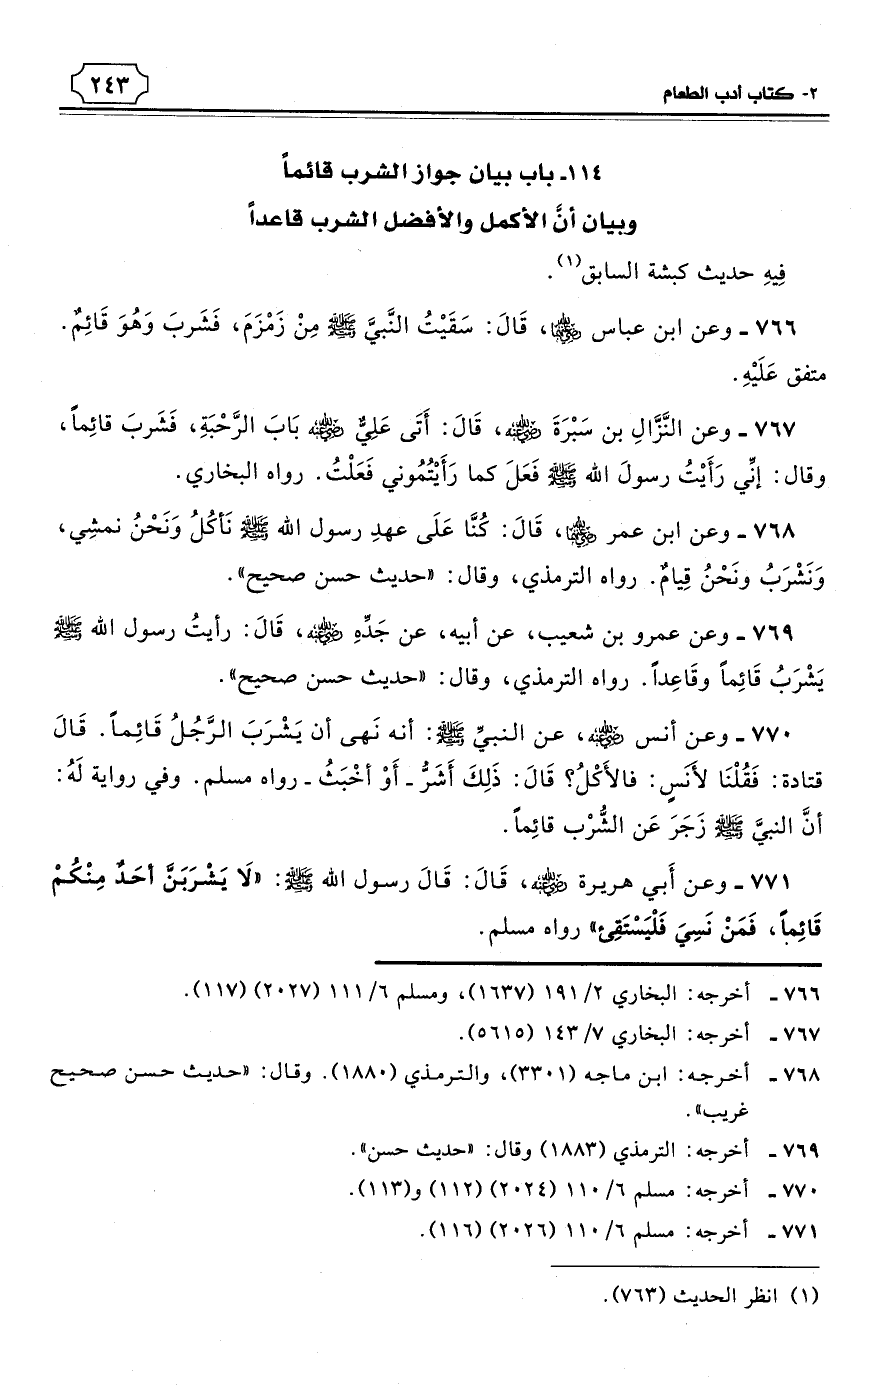 ٢- كتاب أدب الطعام
٢٤٣
١١٤ـ باب بيان جواز الشرب قائماً
وبيان أنَّ الأكمل والأفضل الشرب قاعداً
فِيهِ حديث كبشة السابق(١).
٧٦٦ ـ وعن ابن عباس ﵄، قَالَ: سَقَيْتُ النَّبيَّ ﷺ مِنْ زَمْزَمَ، فَشَربَ وَهُوَ قَائِمٌ.
متفق عَلَيْهِ.
٧٦٧ ـ وعن النَّزَّالِ بن سَبْرَةَ ﵁، قَالَ: أَتَى عَلِيٌّ ﵁ بَابَ الرَّحْبَةِ، فَشَربَ قائِماً،
وقال: إنِّي رَأَيْتُ رسولَ الله ﷺ فَعَلَ كما رَأَيْتُمُوني فَعَلْتُ. رواه البخاري.
٧٦٨ ـ وعن ابن عمر ﵄، قَالَ: كُنَّا عَلَى عهدِ رسول الله ﷺ نَأكُلُ وَنَحْنُ نمشِي،
وَنَشْرَبُ ونَحْنُ قِيامٌ. رواه الترمذي، وقال: «حديث حسن صحيح».
٧٦٩ ـ وعن عمرو بن شعيب، عن أبيه، عن جَدِّهِ ﵁، قَالَ: رأيتُ رسول الله ﷺ
يَشْرَبُ قَائِماً وقَاعِداً. رواه الترمذي، وقال: «حديث حسن صحيح».
٧٧٠ ـ وعن أنس ﵁، عن النبيِّ ﷺ: أنه نَهى أن يَشْرَبَ الرَّجُلُ قَائِماً. قَالَ
قتادة: فَقُلْنَا لأَنَسٍ: فالأَكْلُ؟ قَالَ: ذَلِكَ أَشَرُّ ـ أَوْ أخْبَثُ ـ رواه مسلم. وفي رواية لَهُ:
أنَّ النبيَّ ﷺ زَجَرَ عَن الشُّرْب قائِماً.
٧٧١ ـ وعن أَبي هريرة ﵁، قَالَ: قَالَ رسول الله ﷺ: «لَا يَشْرَبَنَّ أحَدٌ مِنْكُمْ
قَائِماً، فَمَنْ نَسِيَ فَلْيَسْتَقِئ» رواه مسلم.
٧٦٦ ـ أخرجه: البخاري ٢/ ١٩١ (١٦٣٧)، ومسلم ٦/ ١١١ (٢٠٢٧) (١١٧).
٧٦٧ ـ أخرجه: البخاري ٧/ ١٤٣ (٥٦١٥).
٧٦٨ ـ أخرجه: ابن ماجه (٣٣٠١)، والترمذي (١٨٨٠). وقال: «حديث حسن صحيح
غريب».
٧٦٩ ـ أخرجه: الترمذي (١٨٨٣) وقال: «حديث حسن».
٧٧٠ ـ أخرجه: مسلم ٦/ ١١٠ (٢٠٢٤) (١١٢) و(١١٣).
٧٧١ ـ أخرجه: مسلم ٦/ ١١٠ (٢٠٢٦) (١١٦).
(١) انظر الحديث (٧٦٣).